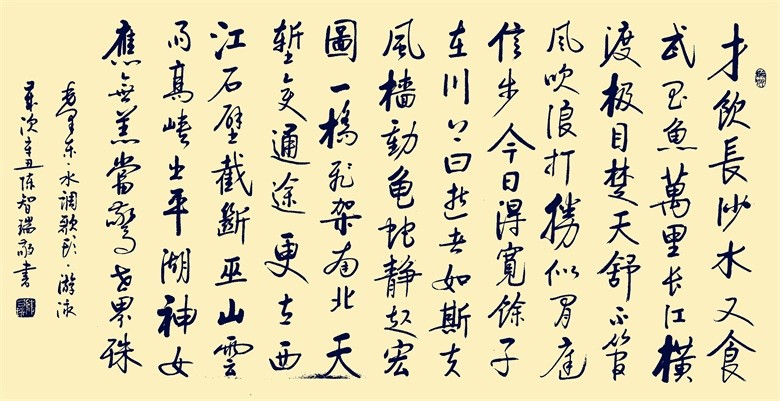 才飲長沙水又食
武昌魚萬里长江橫
渡极目楚天舒不管
风吹浪打勝似閒庭
信步今日得寬餘子
在川上曰逝者如斯夫
風檣動龟蛇静起宏
圖一橋飛架南北天
塹变通途更立西
江石壁截斷巫山雲
雨高峡出平湖神女
應無恙當驚世界殊
毛泽东·水调歌头·游泳
歲次辛丑陈智瑞敬書